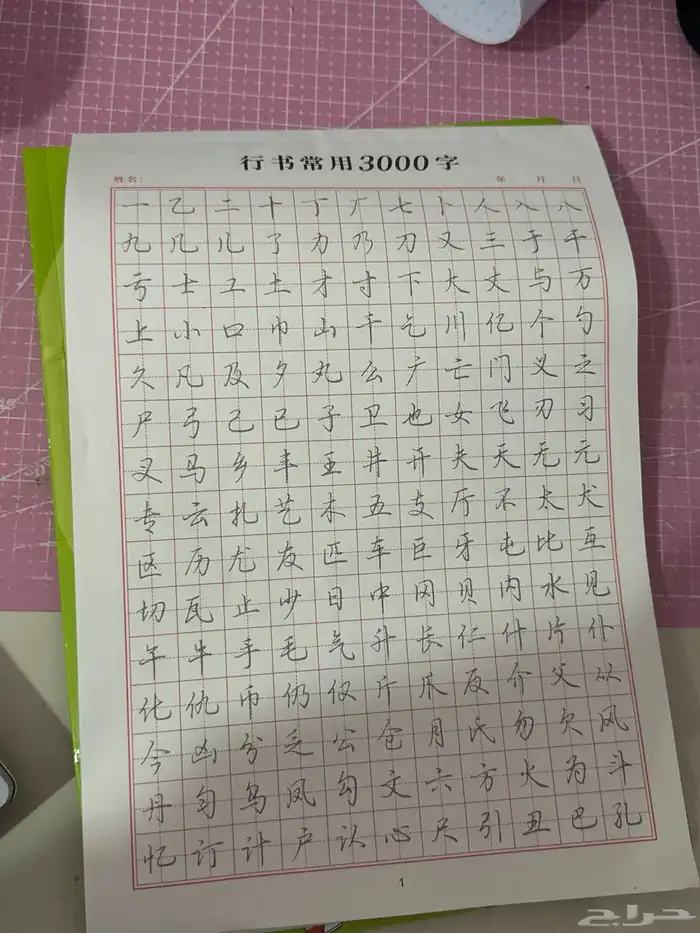 行书常用3000字
姓名： 年 月 日
一乙二十丁厂七卜人入八
九几儿了力乃刀又三于干
亏士工土才寸下大丈与万
上小口巾山千乞川亿个勺
久凡及夕丸么广亡门义之
尸弓己已子卫也女飞刃习
叉马乡丰王井开夫天无元
专云扎艺木五支厅不太犬
区历尤友匹车巨牙屯比互
切瓦止少日中冈贝内水见
午牛手毛气升长仁什片仆
化仇币仍仅斤爪反介父从
今凶分乏公仓月氏勿欠风
丹匀乌凤勾文六方火为斗
忆订计户认心尺引丑巴孔
1
حراج